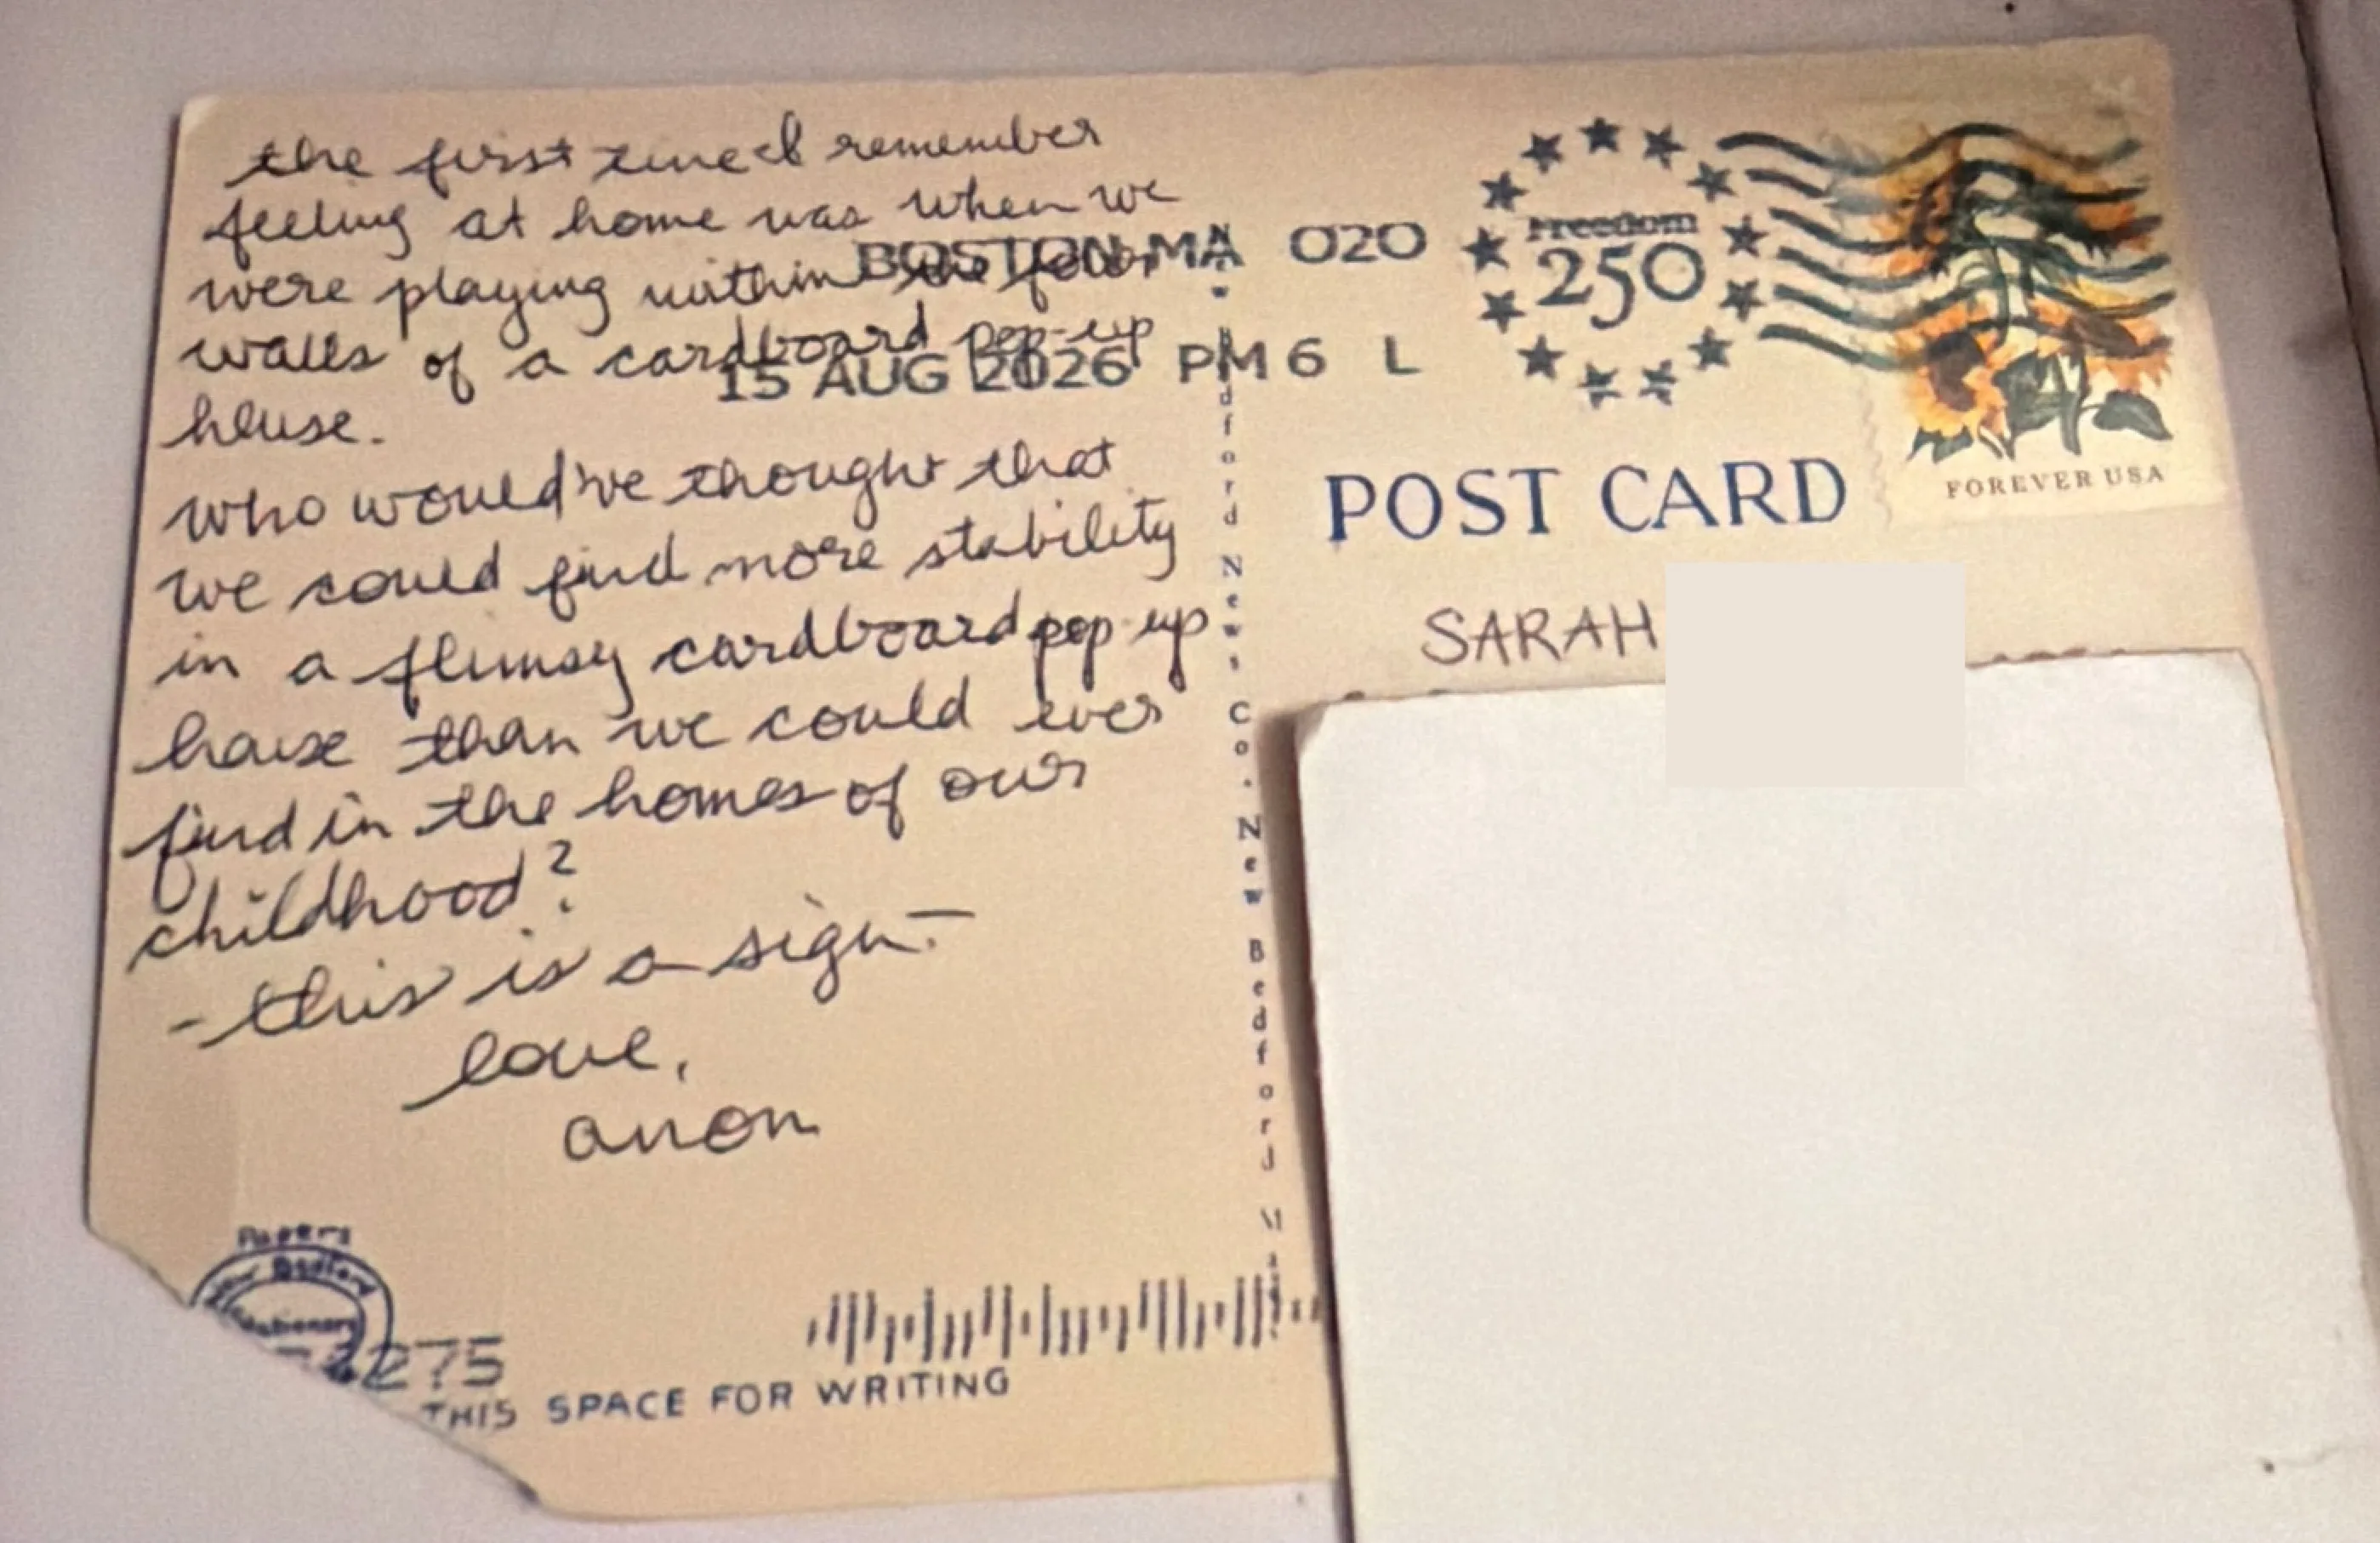 the first time I remember
feeling at home was when we
were playing within the four
walls of a cardboard pop-up
house.
who would've thought that
we could find more stability
in a flimsy cardboard pop up
house than we could ever
find in the homes of our
childhood?
- this is a sign. -
love,
anon
BOSTON MA 020
15 AUG 2026 PM 6 L
Freedom
250
FOREVER USA
POST CARD
SARAH
New Bedford News Co. New Bedford
Papers
New Bedford
Stationery
275
THIS SPACE FOR WRITING